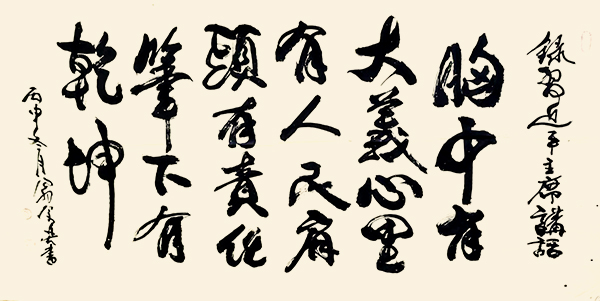 錄習近平主席講話
胸中有
大義心里
有人民肩
頭有責任
筆下有
乾坤
丙申冬月書